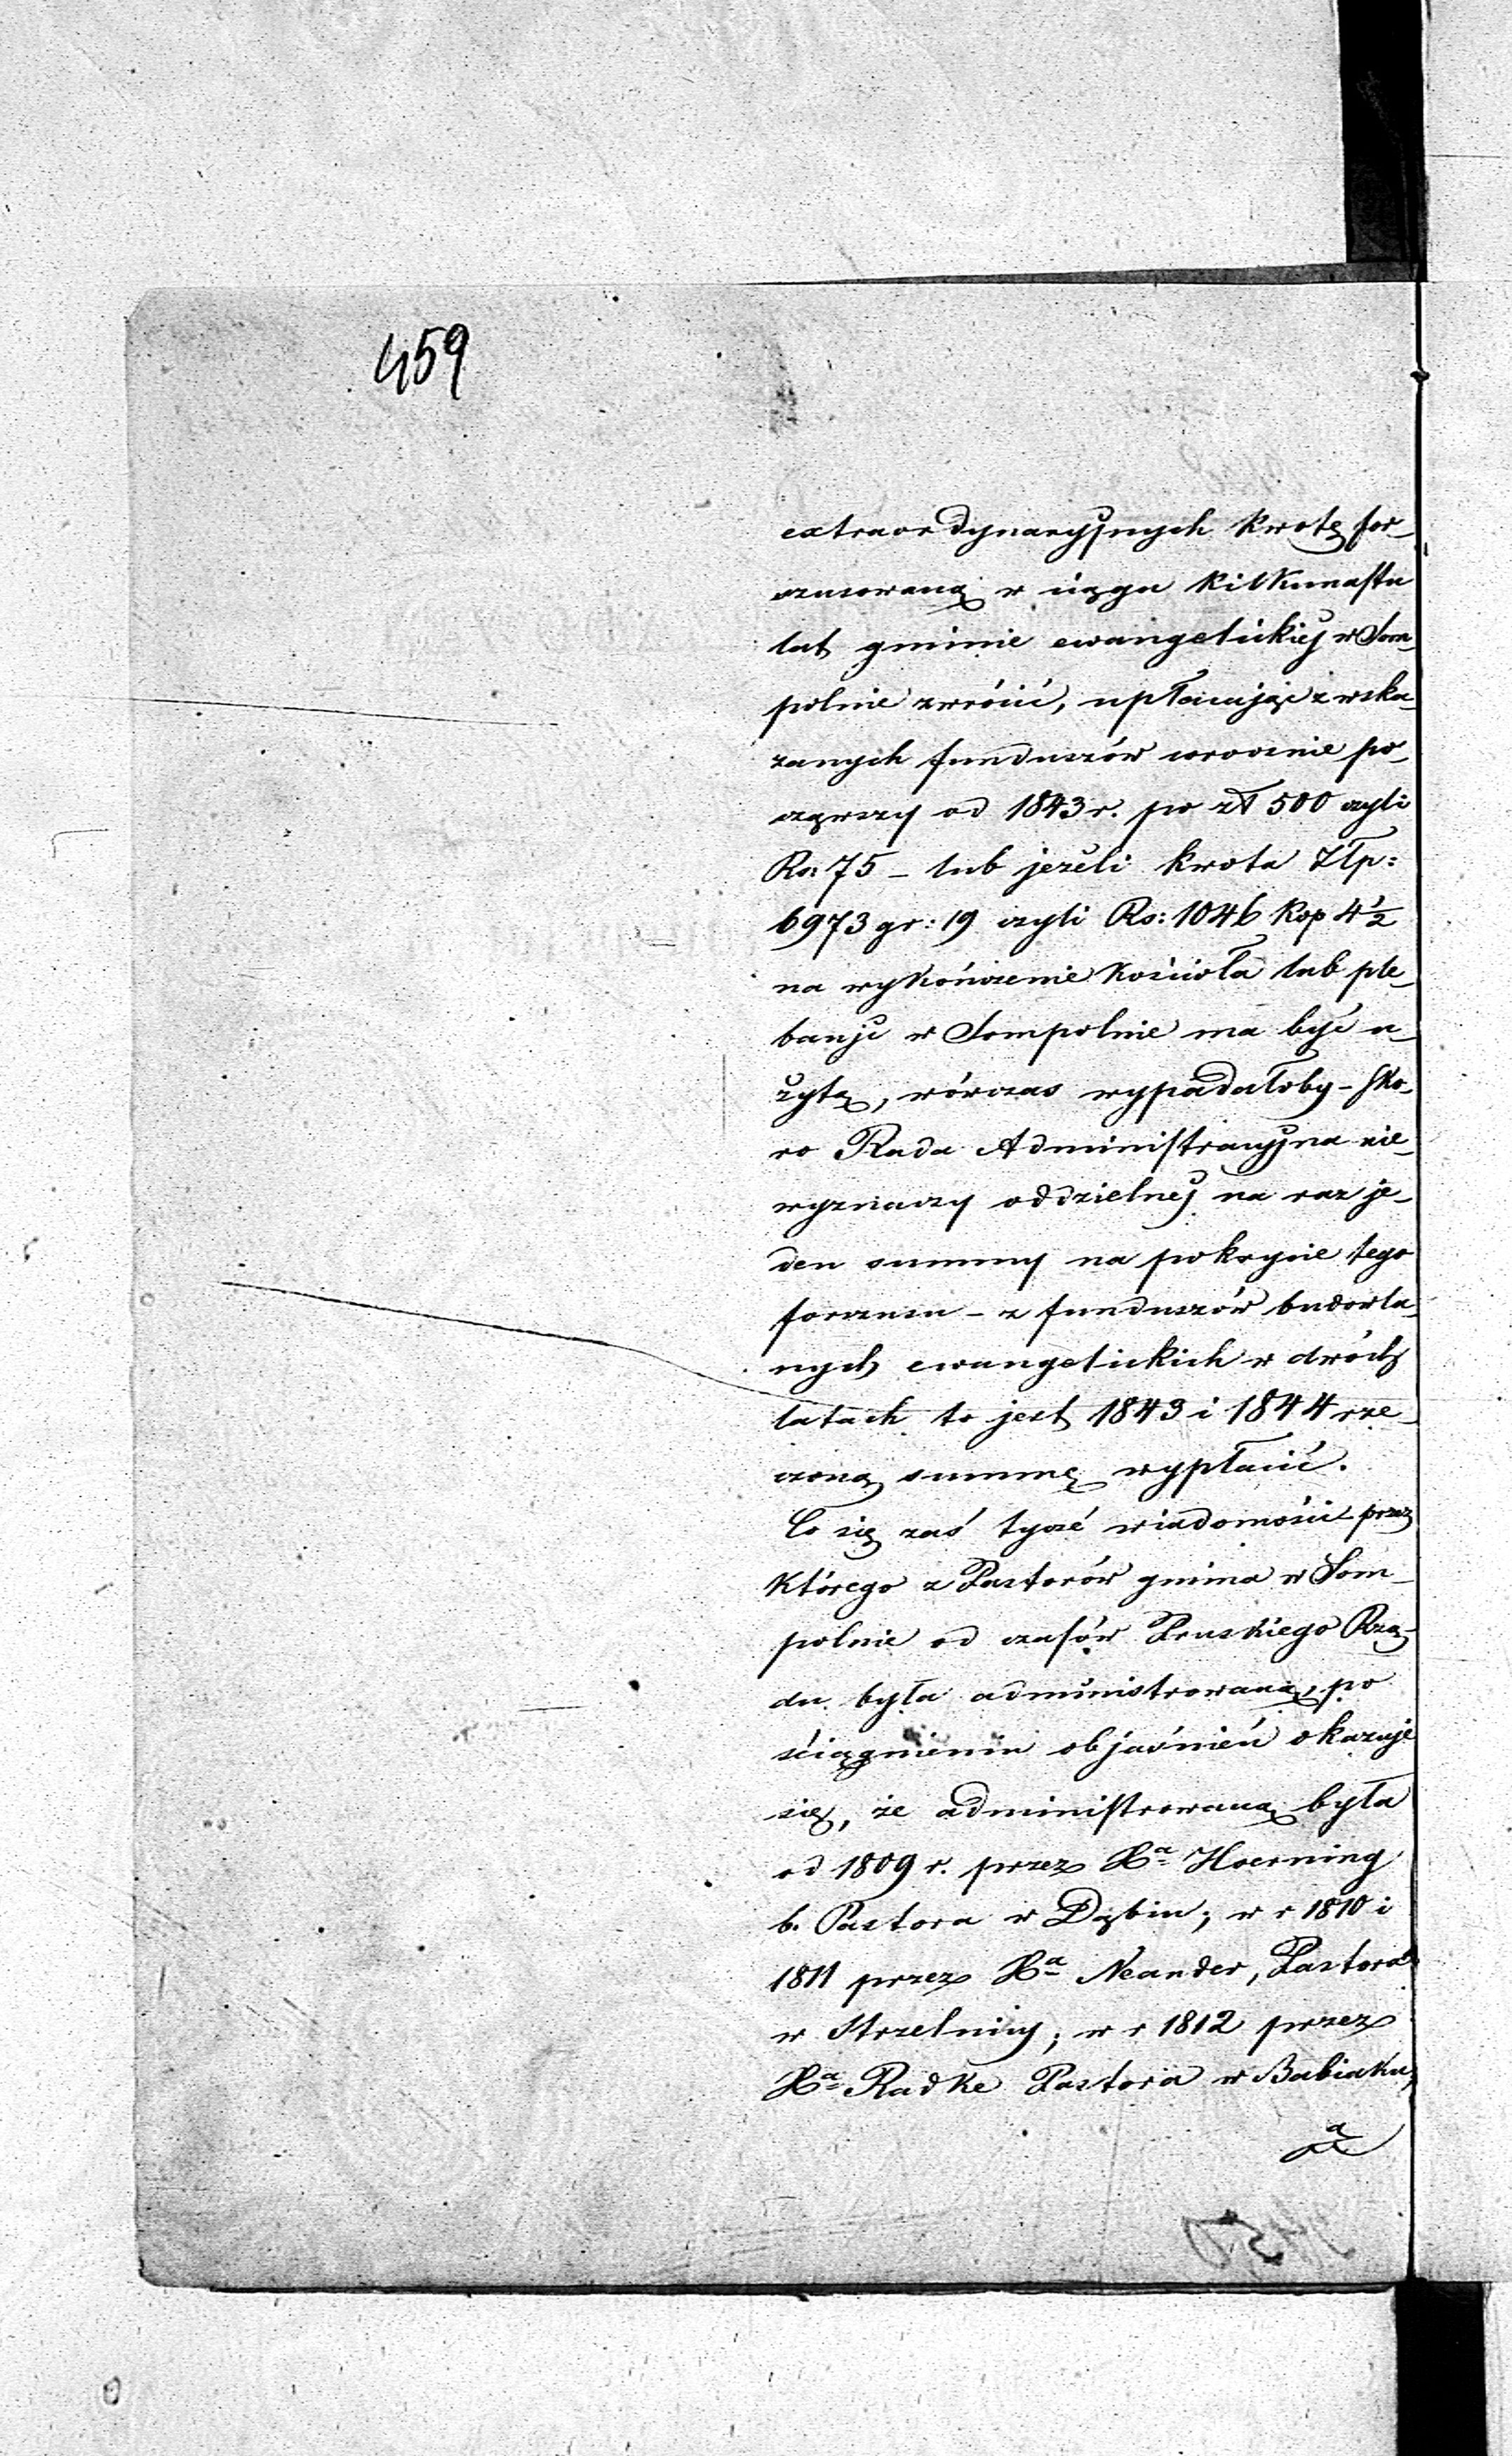 459
extraordynaryjnych kwotę for-
szusowaną w ciągu kilkunastu
lat gminie ewangelickiej w Som-
polnie zwrócić, upłacając z wska-
zanych funduszów corocznie po-
cząwszy od 1843 r. po zł 500 czyli
Rs: 75 – lub jeżeli kwota Złp:
6973 gr: 19 czyli Rs: 1046 kop 4½
na wykończenie kościoła lub ple-
banji w Sompolnie ma być u-
żytą, wówczas wypadałoby – sko-
ro Rada Administracyjna nie-
wyznaczy oddzielnej na raz je-
den summy na pokrycie tego
forszusu – z funduszów budowla-
nych ewangelickich w dwóch
latach to jest 1843 i 1844 rze-
czoną summę wypłacić.
Co się zaś tycze wiadomości przez
którego z Pastorów gmina w Som-
polnie od czasów Pruskiego Rzą-
du była administrowaną, po
ściągnieniu objaśnień okazuje
się, że administrowaną była
od 1809 r. przez Xa Hoerning
b. Pastora w Dąbiu; w r 1810 i
1811 przez Xa Neander, Pastora
w Strzelnicy; w r 1812 przez
Xa Radke Pastora w Babiaku,